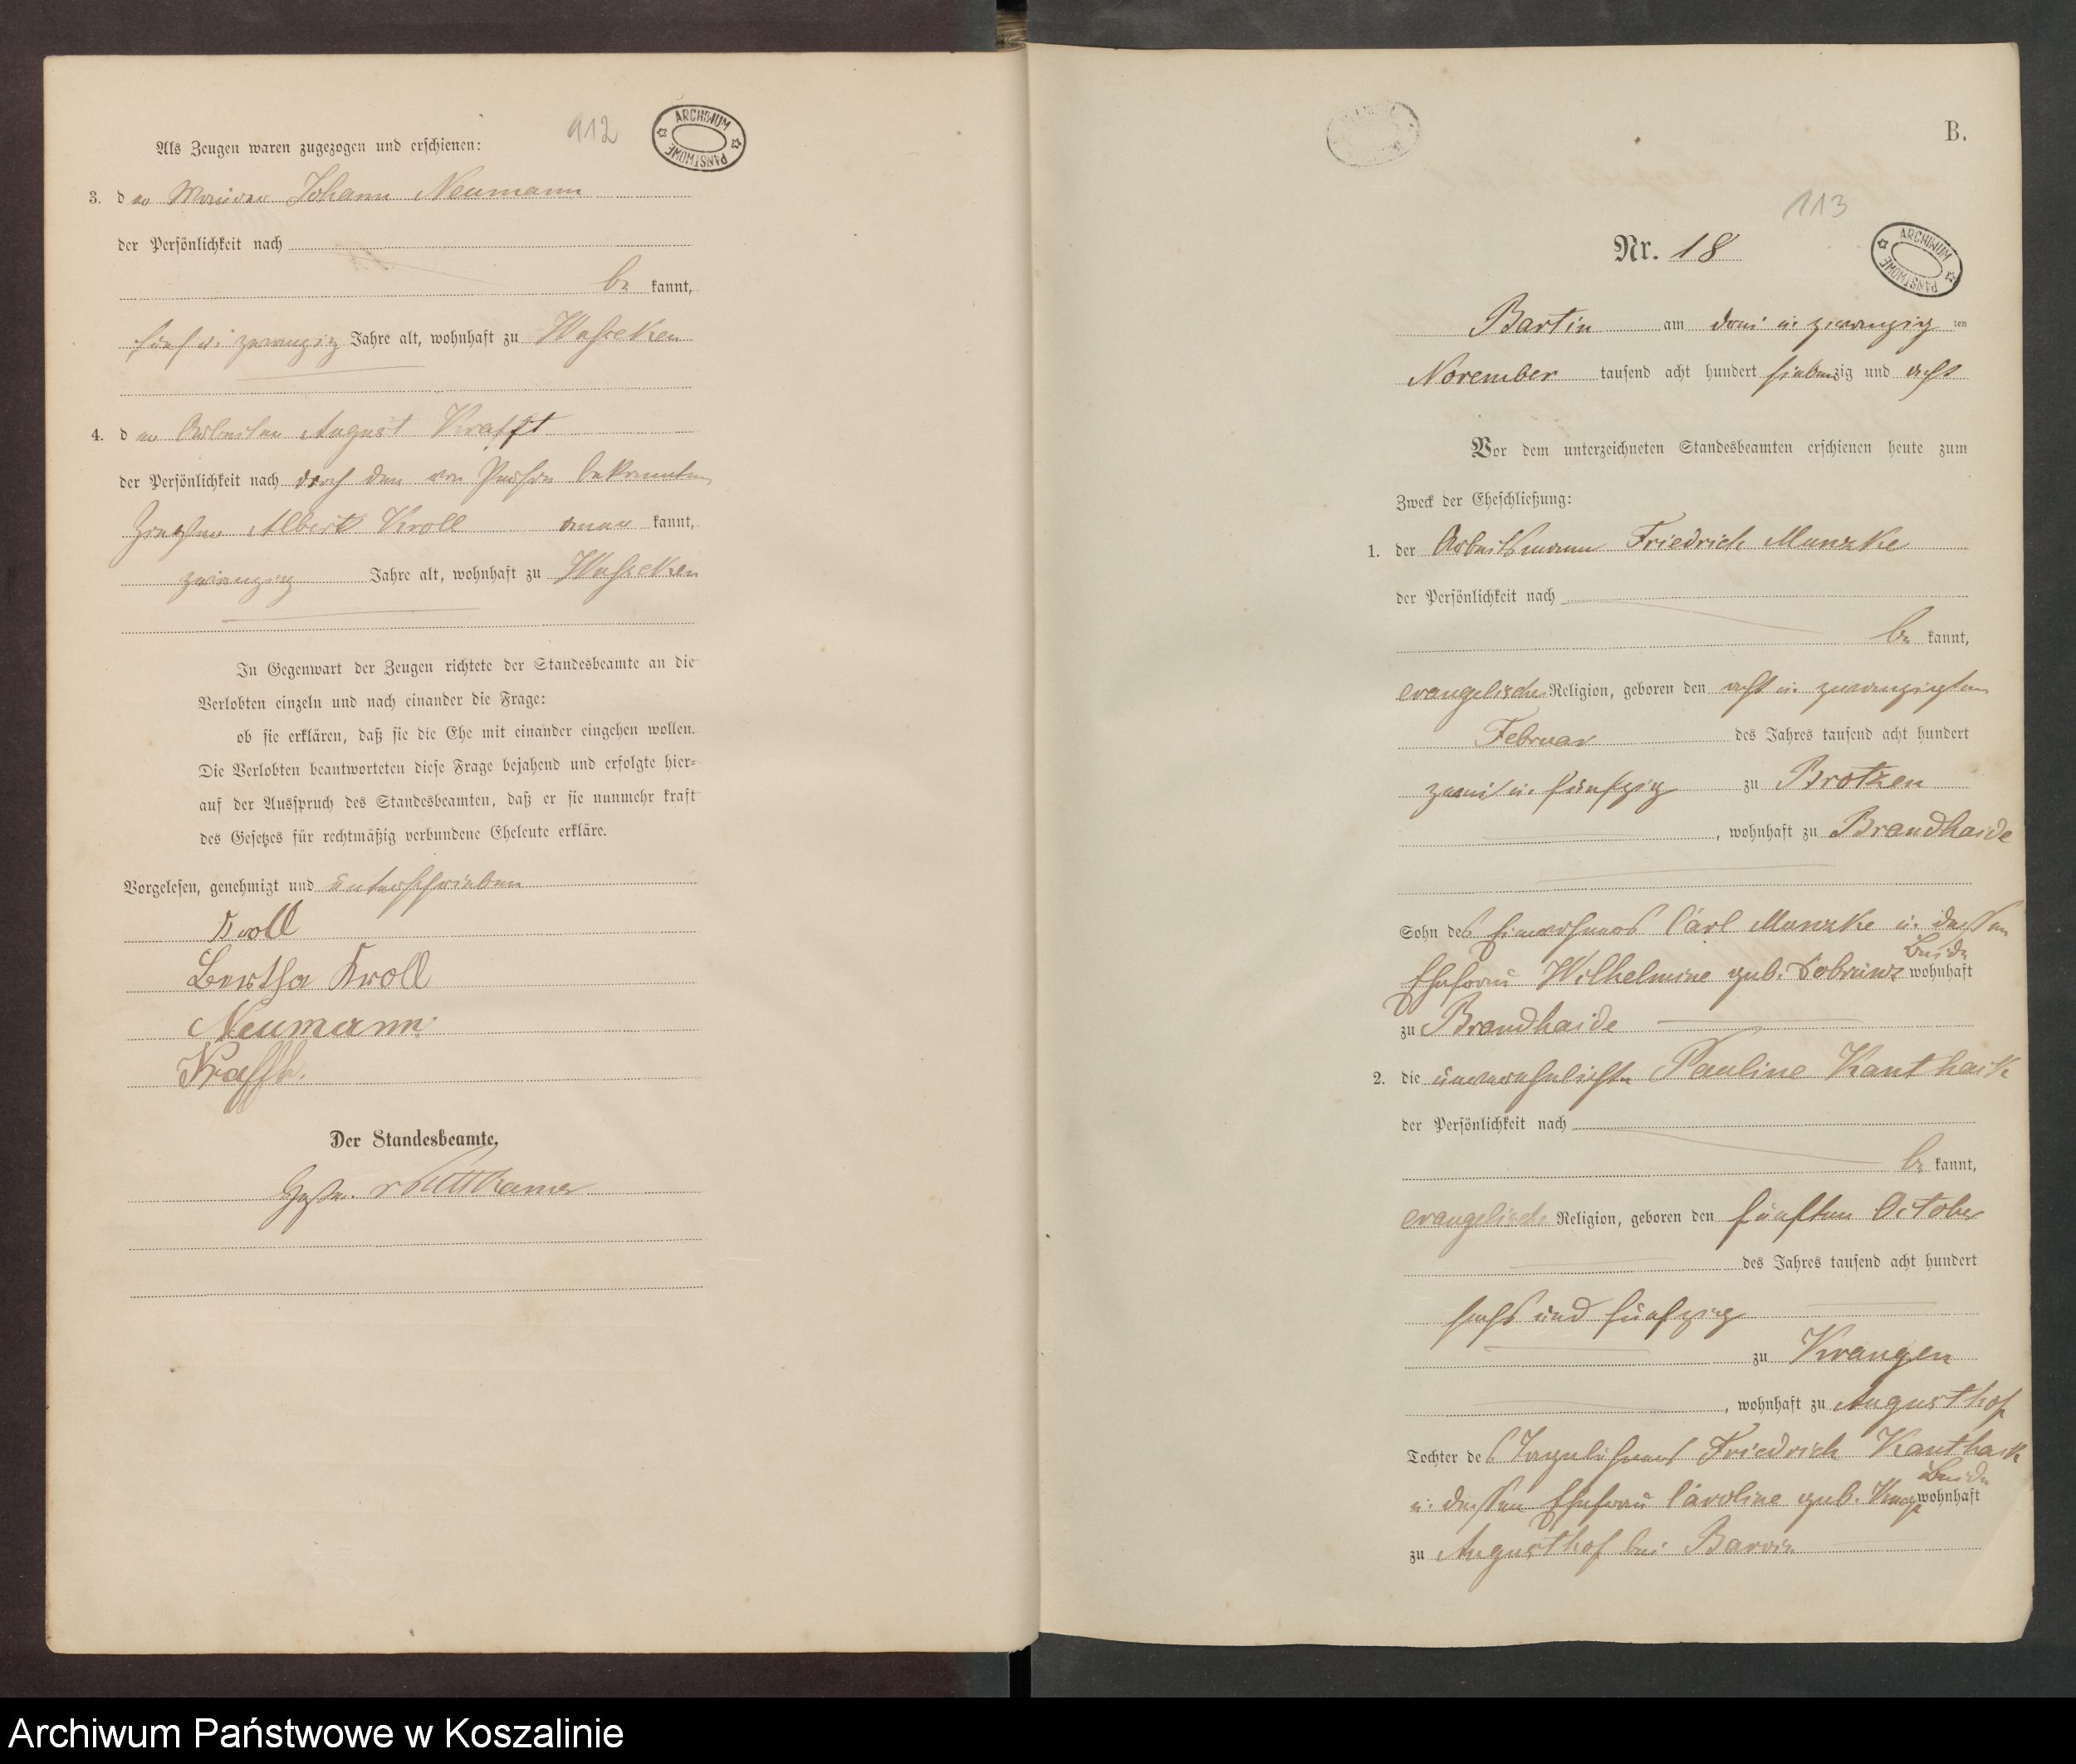 Als Zeugen waren zugezogen und erschienen:
112
ARCHIWUM PAŃSTWOWE
3. der Maurer Johann Neumann
der Persönlichkeit nach
be kannt,
fünf u. zwanzig Jahre alt, wohnhaft zu Wusseken
4. der Arbeiter August Krafft
der Persönlichkeit nach durch den von Person bekannten
Zeugen Albert Kroll aner kannt,
zwanzig Jahre alt, wohnhaft zu Wusseken
In Gegenwart der Zeugen richtete der Standesbeamte an die
Verlobten einzeln und nach einander die Frage:
ob sie erklären, daß sie die Ehe mit einander eingehen wollen.
Die Verlobten beantworteten diese Frage bejahend und erfolgte hier=
auf der Ausspruch des Standesbeamten, daß er sie nunmehr kraft
des Gesetzes für rechtmäßig verbundene Eheleute erkläre.
Vorgelesen, genehmigt und unterschrieben
Kroll
Bertha Kroll
Neumann
Krafft.
Der Standesbeamte,
v Puttkamer
B.
113
Nr. 18
ARCHIWUM PAŃSTWOWE
Bartin am drei u. zwanzig ten
November tausend acht hundert siebenzig und acht
Vor dem unterzeichneten Standesbeamten erschienen heute zum
Zweck der Eheschließung:
1. der Arbeitsmann Friedrich Manzke
der Persönlichkeit nach
be kannt,
evangelischer Religion, geboren den acht u. zwanzigsten
Februar des Jahres tausend acht hundert
zwei u. fünfzig zu Brotzen
, wohnhaft zu Brandhaide
Sohn des Einwohners Carl Manzke u. dessen
Ehefrau Wilhelmine geb. Beide wohnhaft
zu Brandhaide
2. die unverehelichte Pauline Kanthack
der Persönlichkeit nach
be kannt,
evangelischer Religion, geboren den fünften October
des Jahres tausend acht hundert
sechs und fünfzig
zu Krangen
, wohnhaft zu Augusthof
Tochter des Tagelöhners Friedrich Kanthack
u. dessen Ehefrau Caroline geb. Beide wohnhaft
zu Augusthof bei Barvin
Archiwum Państwowe w Koszalinie